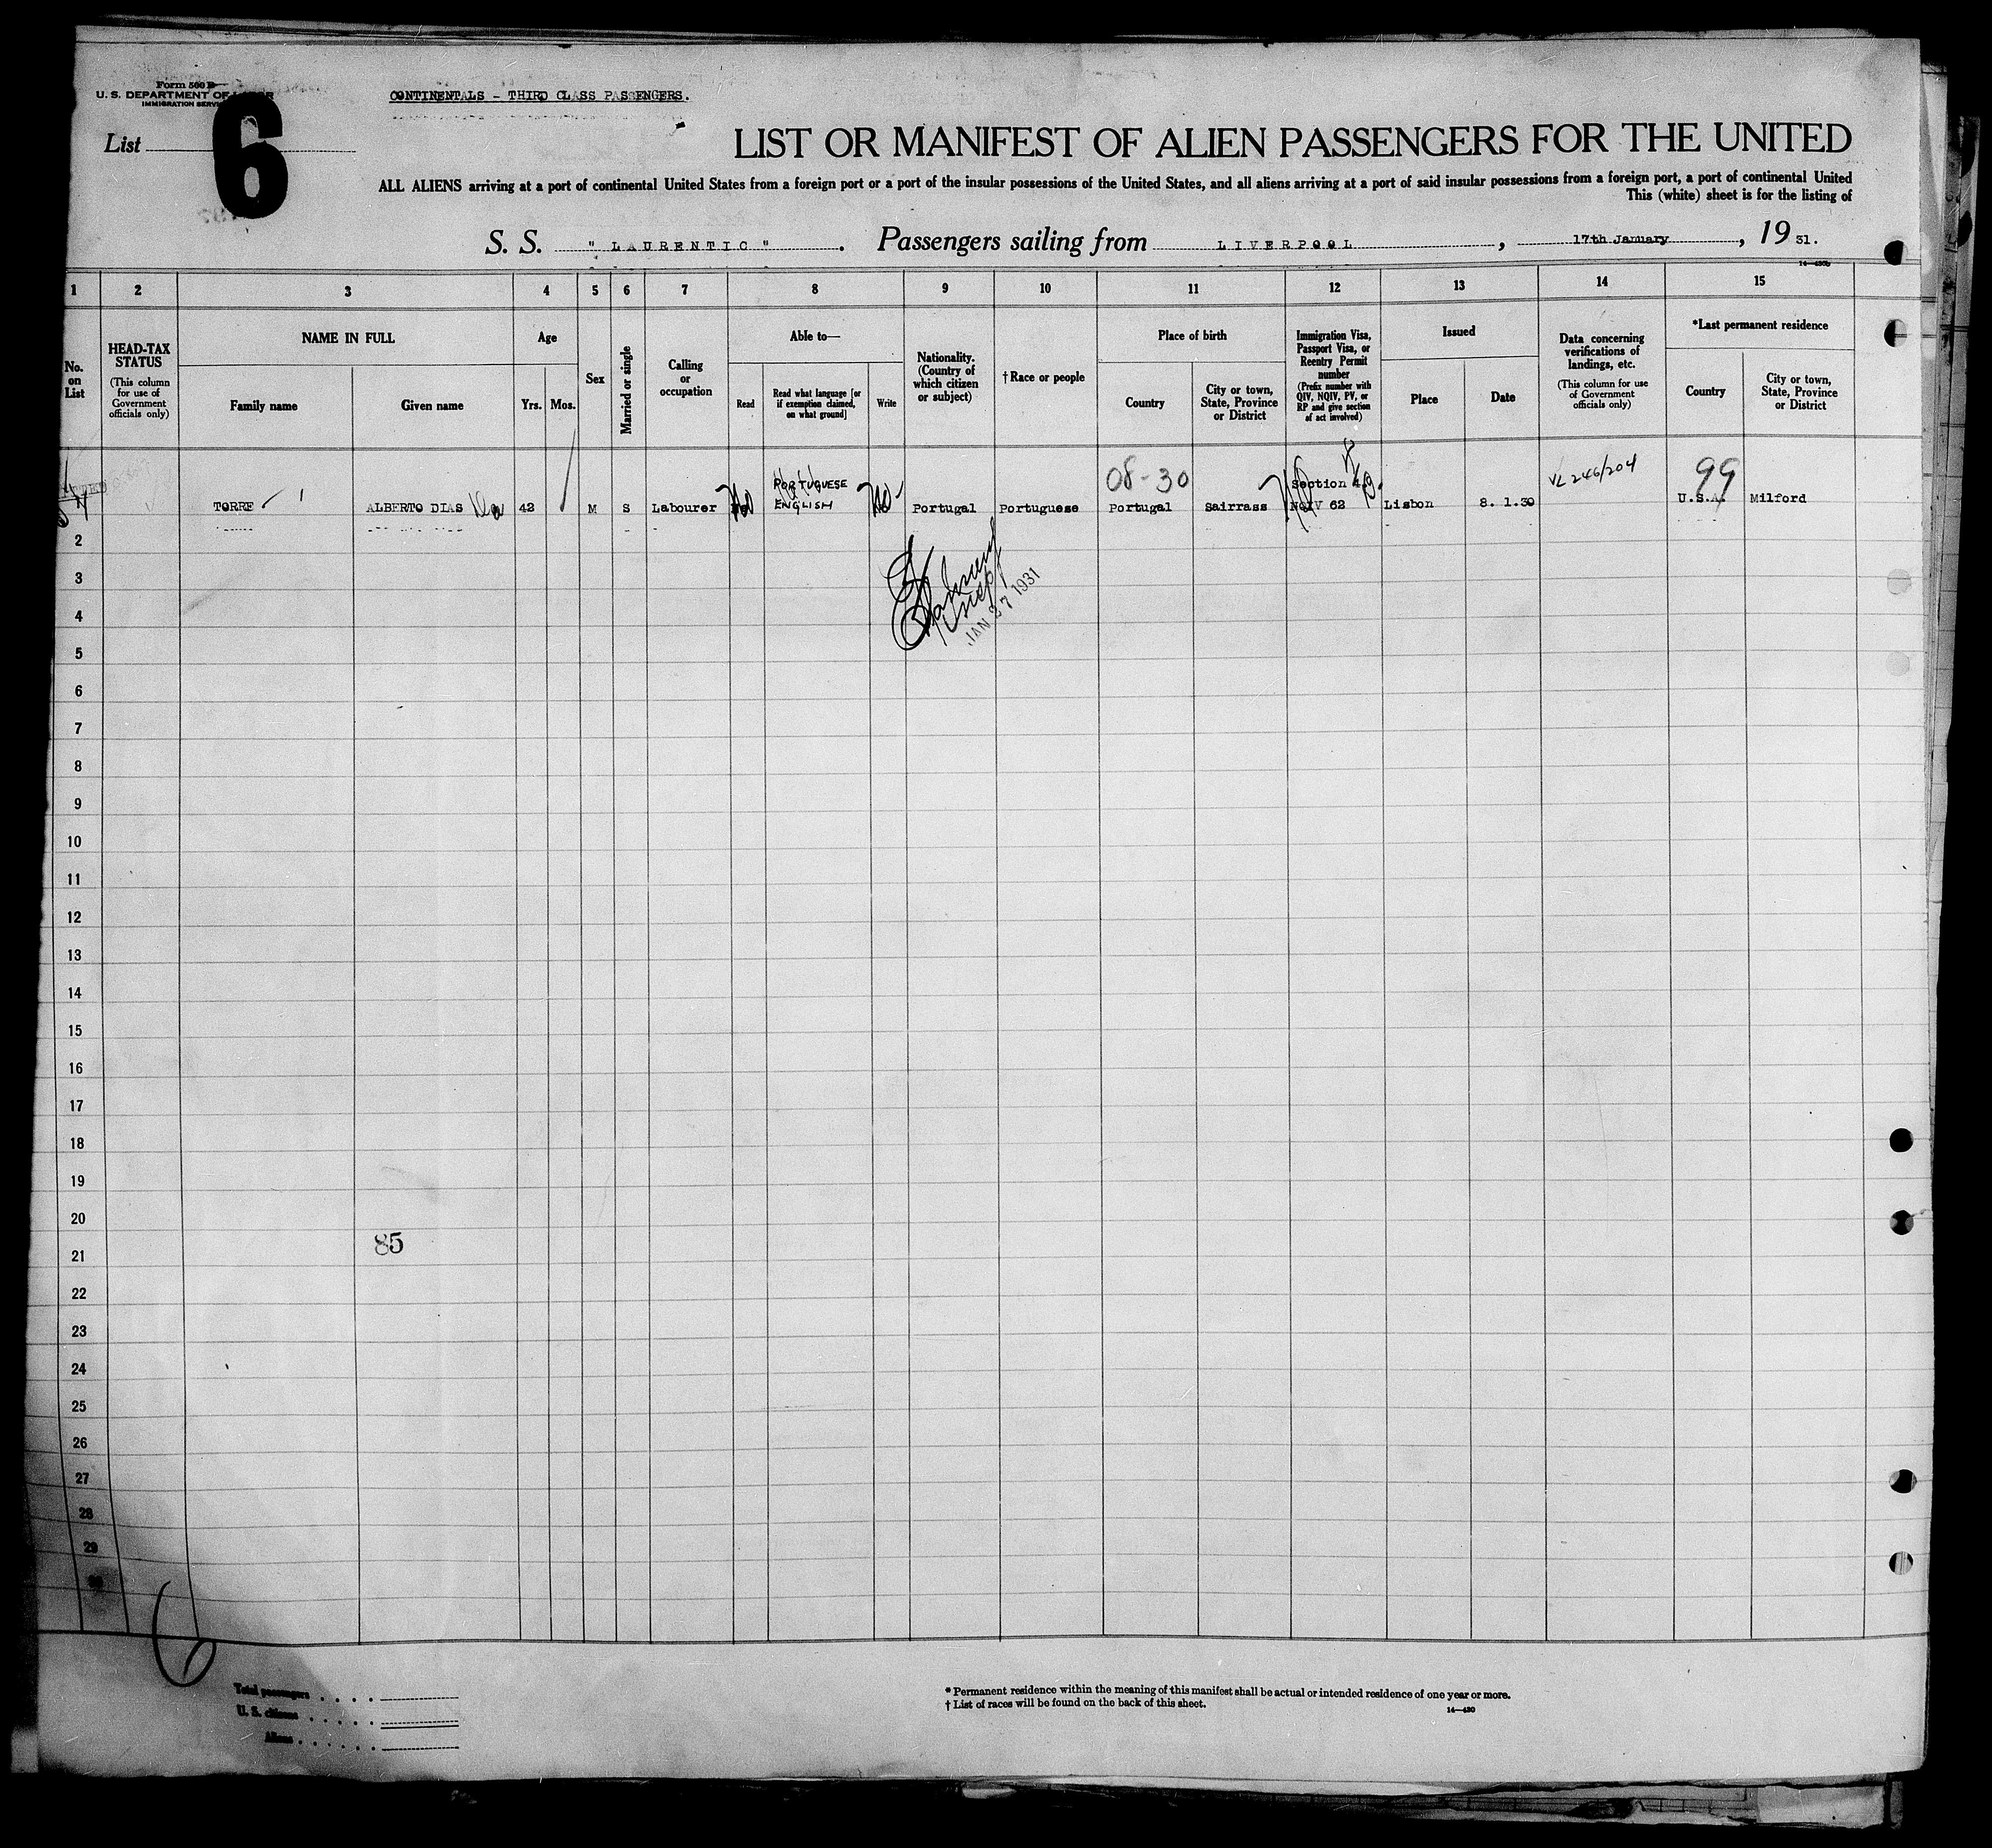 Form 500 B
U. S. DEPARTMENT OF LABOR
IMMIGRATION SERVICE
CONTINENTALS - THIRD CLASS PASSENGERS.
List 6
LIST OR MANIFEST OF ALIEN PASSENGERS FOR THE UNITED
ALL ALIENS arriving at a port of continental United States from a foreign port or a port of the insular possessions of the United States, and all aliens arriving at a port of said insular possessions from a foreign port, a port of continental United
This (white) sheet is for the listing of
S. S. "LAURENTIC". Passengers sailing from LIVERPOOL, 17th January, 19 31.
1 2 3 4 5 6 7 8 9 10 11 12 13 14 15
No. on List
HEAD-TAX STATUS (This column for use of Government officials only)
NAME IN FULL
Family name Given name
Age
Yrs. Mos.
Sex
Married or single
Calling or occupation
Able to—
Read Read what language [or if exemption claimed, on what ground] Write
Nationality. (Country of which citizen or subject)
† Race or people
Place of birth
Country City or town, State, Province or District
Immigration Visa, Passport Visa, or Reentry Permit number (Prefix number with QIV, NQIV, PV, or RP and give section of act involved)
Issued
Place Date
Data concerning verifications of landings, etc. (This column for use of Government officials only)
*Last permanent residence
Country City or town, State, Province or District
08-30 99
PORTUGUESE Section 4 VL 246/204
TORRE ALBERTO DIAS Da 42 M S Labourer No ENGLISH No Portugal Portuguese Portugal Sairrass NQIV 62 Lisbon 8. 1.30 U.S.A. Milford
JAN 27 1931
2
3
4
5
6
7
8
9
10
11
12
13
14
15
16
17
18
19
20
85
21
22
23
24
25
26
27
28
29
30
6
Total passengers
U. S. citizens
Aliens
* Permanent residence within the meaning of this manifest shall be actual or intended residence of one year or more.
† List of races will be found on the back of this sheet.
14—430